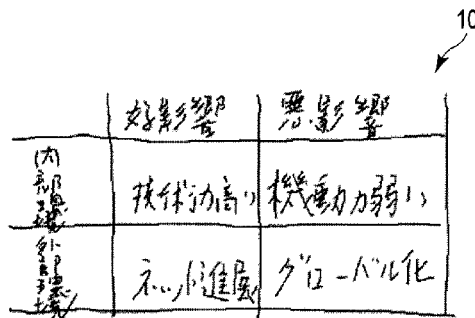 10
好影響 悪影響
内部環境 技術力高い 機動力弱い
外部環境 ネット進展 グローバル化